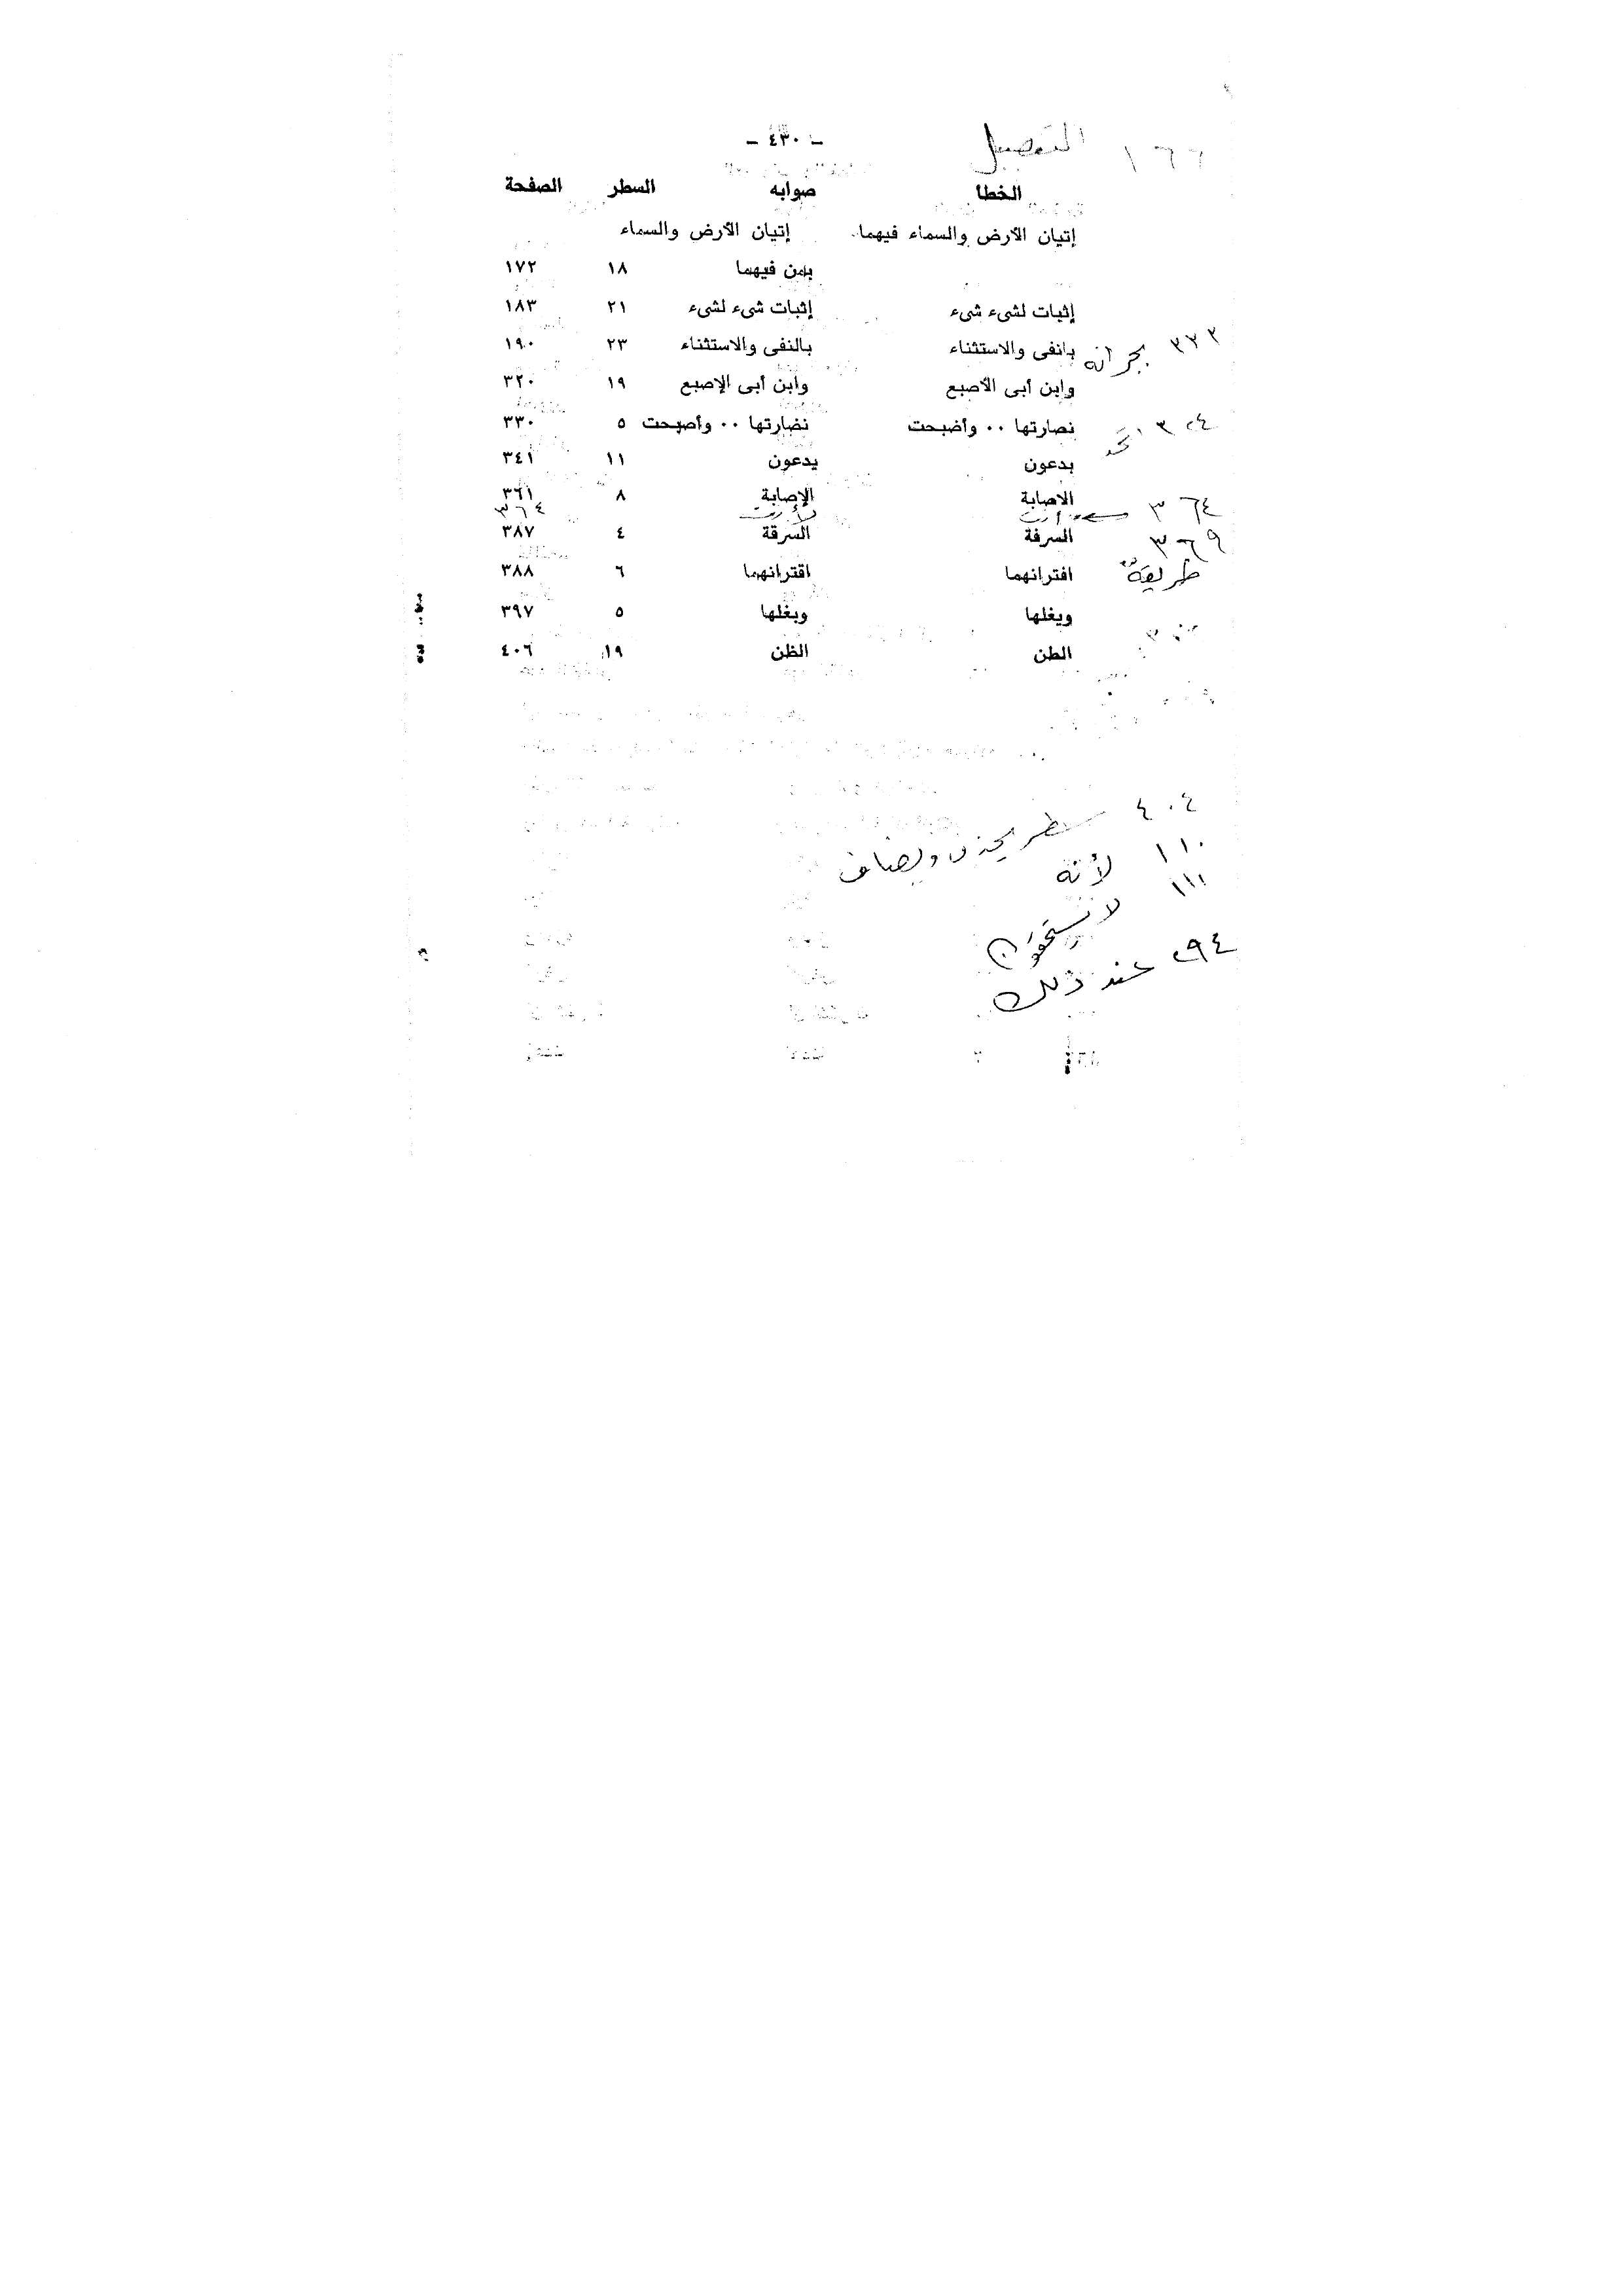 ١٦٦ التفصيل
- ٤٣٠ -
الخطا صوابه السطر الصفحة
إتيان الأرض والسماء فيهما إتيان الأرض والسماء
بمن فيهما ١٨ ١٧٢
إثبات لشىء شىء إثبات شىء لشىء ٢١ ١٨٣
بانفى والاستثناء بالنفى والاستثناء ٢٣ ١٩٠
وابن أبى الأصبع وابن أبى الإصبع ١٩ ٣٢٠
نصارتها ٠٠ وأضبحت نضارتها ٠٠ وأصبحت ٥ ٣٣٠
بدعون يدعون ١١ ٣٤١
الاصابة الإصابة ٨ ٣٦١
٣٦٤
٣٦٤
السرفة السرقة ٤ ٣٨٧
٣٦٩
طريقة
افترانهما اقترانهما ٦ ٣٨٨
ويغلها وبغلها ٥ ٣٩٧
الطن الظن ١٩ ٤٠٦
٤٠٤ سطر يحذف ويضاف
١١٠ لأنه
١١١
٢٩٤ عند ذلك